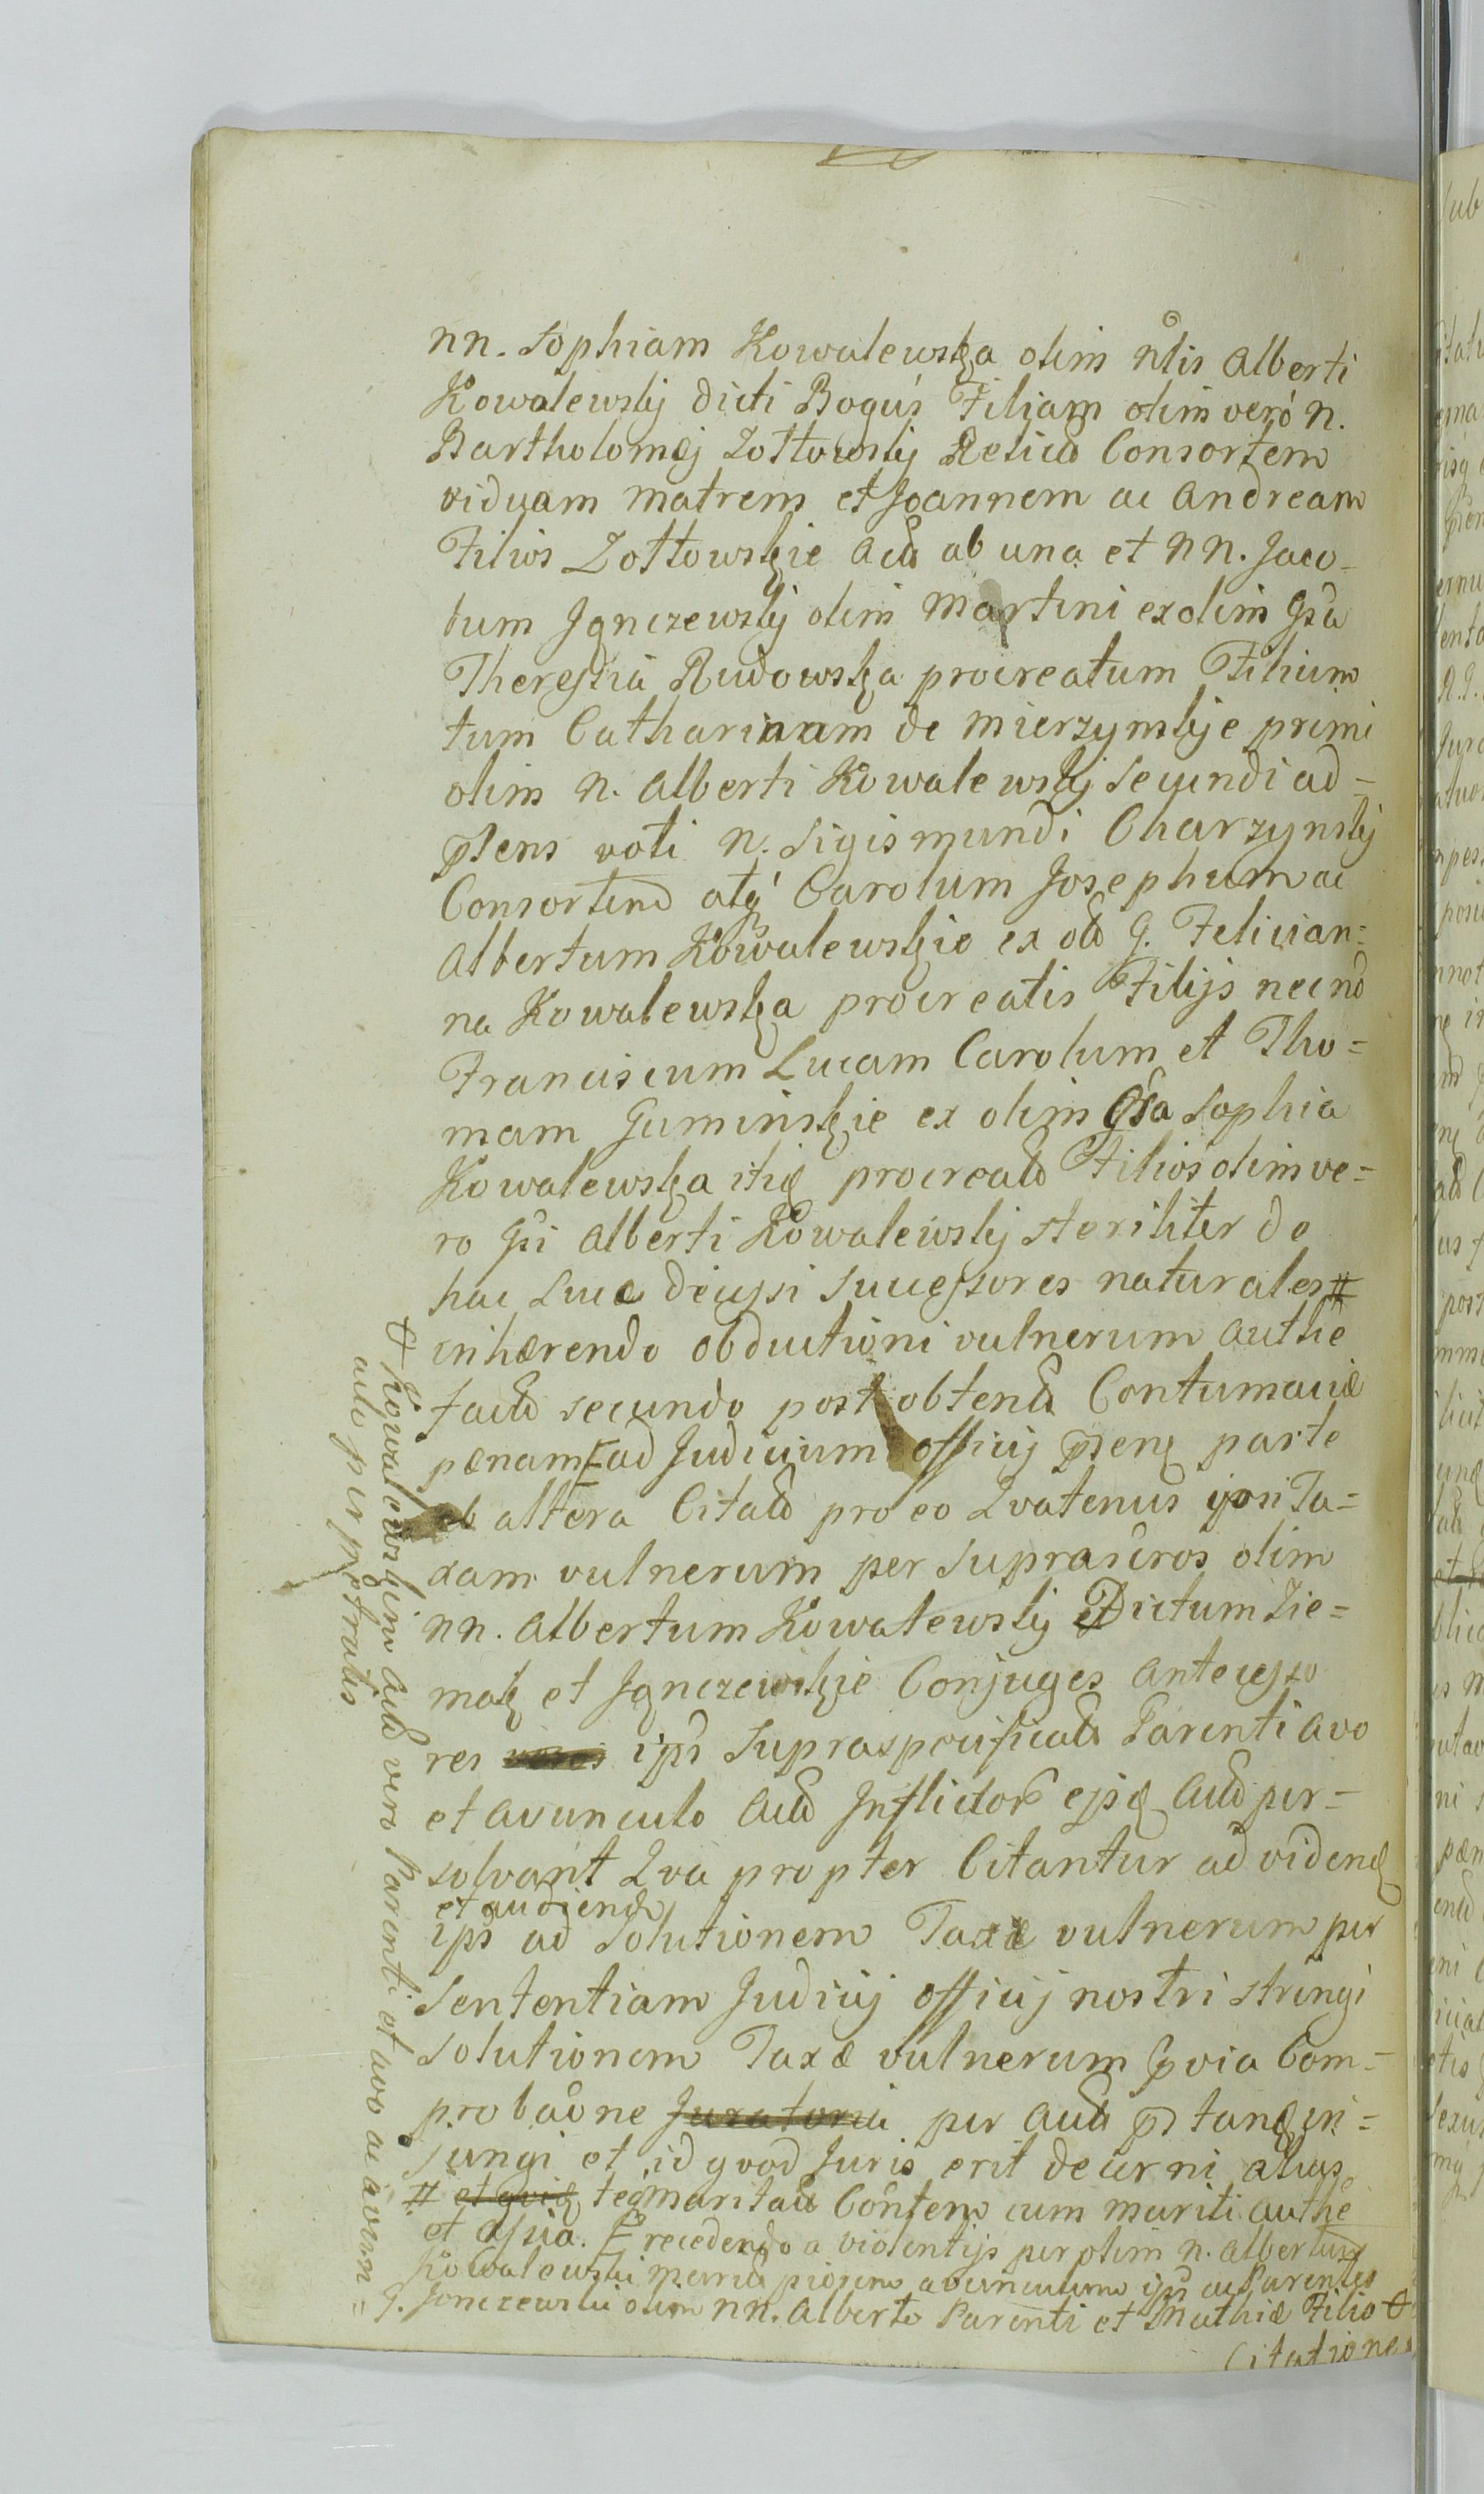 nn. Sophiam Kowalewska olim nlis Alberti
Kowalewskij dicti Boguś Filiam olim veró n.
Bartholomæj Zołtowskij Relicta Consortem
viduam matrem et Joannem ac Andream
Filios Zołtowskie Actt ab una et nn. Jaco-
bum Jgnczewskij olim Martini ex olim Gsa
Theressia Rudowska procreatum Filium
tum Catharinam de Mierzynskije primi
olim n. Alberti Kowalewskij secundi ad-
psens voti n. Sigismundi Charzynskij
Consortem atq Carolum Josephum ac
Albertum Kowalewskie ex G. Felician=
na Kowalewska procreatis Filijs necno
Franciscum Lucam Carolum et Tho=
mam Guminskie ex olim Gsa Sophia
Kowalewska procreatt Filios olim ve=
ro Gsi Alberti Kowalewskij steriliter de
hac Luce decessi Successores naturales #
inhærendo obductioni vulnerum Authe
factt secundo post obtentt Contumaciæ
pænam E ad Judicium officij psens parte
ab altera Citatt pro eo Qvatenus ipsi Ta=
xam vulnerum per suprascros olim
nn. Albertum Kowalewskij Dictum Zie=
mak et Jgnczewskie Conjuges antecesso
res ipsi Supraspecificatt Parenti avo
et avunculo Actt Jnflictor Actt per=
solvant Qva propter Citantur ad videnq
et audienq
ipsi ad Solutionem Taxæ vulnerum per
Sententiam Judicij officij nostri stringi
Solutionem Taxæ vulnerum pvia Com=
probaone Juratoria per Actt in=
jungi et id qvod Juris erit decerni alias
# maritatt Contem cum mariti Authe
et Assia. E recedendo a violentijs per olim n. Albertum
Kowalewski avunculum ipsi ac Parentes
G. Jgnczewskie olim nn. Alberto Parenti et Mathiæ Filio &
Citationes
& Kowalewskim Actt vero Parenti et avo ac avun=
culo perpetratis